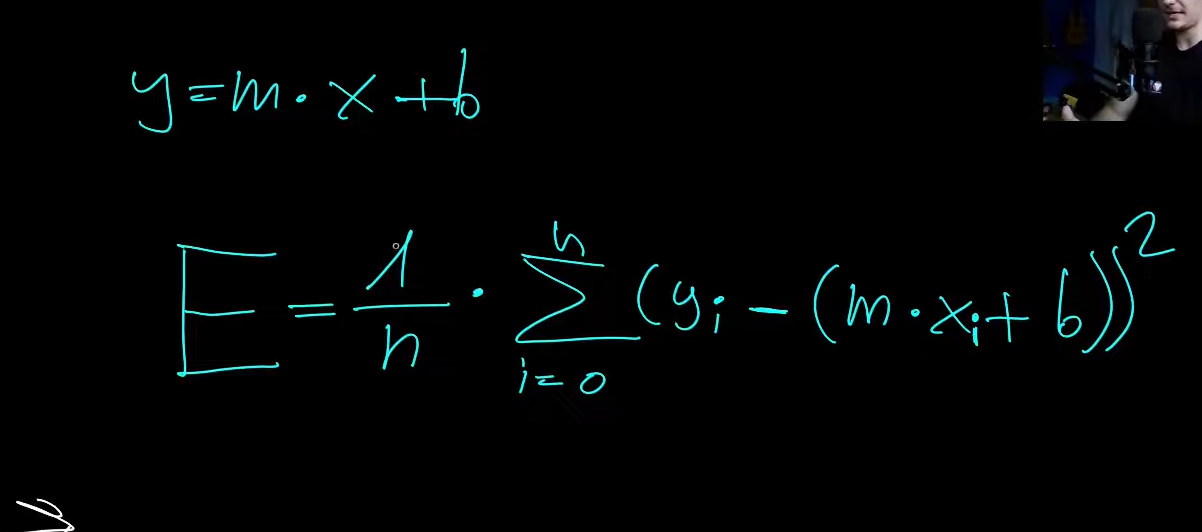 y = m · x + b
E = 1/n · ∑ i=0 n (yᵢ − (m · xᵢ + b))²